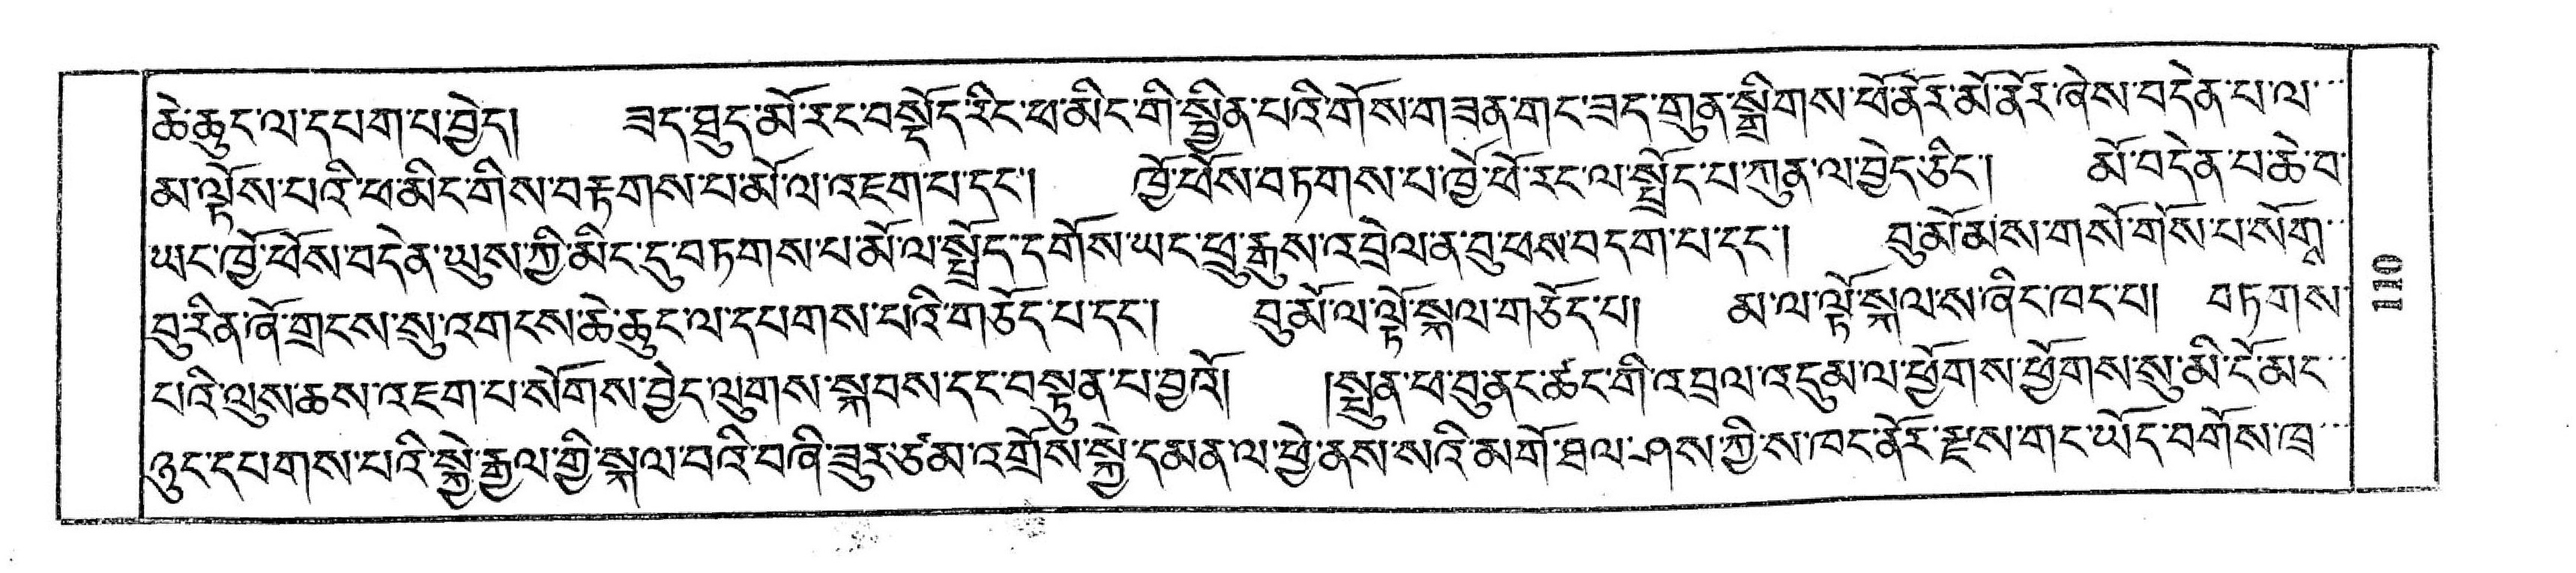 ཆེ་ཆུང་ལ་དཔག་པ་བྱེད།    ཟད་ཐུད་མོ་རང་བསྡོད་རིང་ཕ་མིང་གི་སྦྱིན་པའི་གོས་གཟན་གང་ཟད་གྲུན་སྒྲིགས་ཕོ་ནོར་མོ་ནོར་ཞེས་བདེན་པ་ལ་
མ་ལྟོས་པའི་ཕ་མིང་གིས་བརྟགས་པ་མོ་ལ་འཇག་པ་དང་།    ཁྱོ་ཕོས་བཏགས་པ་ཁྱོ་ཕོ་རང་ལ་སྤྲོད་པ་ཀུན་ལ་བྱེད་ཅིང་།    མོ་བདེན་པ་ཆེ་བ་
ཡང་ཁྱོ་ཕོས་བདེན་ཡུས་ཀྱི་མིང་དུ་བཏགས་པ་མོ་ལ་སྤྲོད་དགོས་ཡང་ཕྲུ་རྒུས་འབྲེལ་ན་བུ་ཕས་བདག་པ་དང་།    བུ་མོ་མས་གསོ་གོས་པ་སོགྭ
བུ་རིན་ཞོ་གྲངས་སུ་འགངས་ཆེ་ཆུང་ལ་དཔགས་པའི་གཅོད་པ་དང་།    བུ་མོ་ལ་ལྟོ་སྐལ་གཅོད་པ།    མ་ལ་ལྟོ་སྐལ་ས་ཞིང་ཁང་པ།  བཏགས་
པའི་ལུས་ཆས་འཇག་པ་སོགས་བྱེད་ལུགས་སྐབས་དང་བསྟུན་པ་བྱའོ།    །སྤུན་ཕ་བུ་ནང་ཚང་གི་འབྲལ་འདུམ་ལ་ཕྱོགས་ཕྱོགས་སུ་མི་ངོ་མང་
ཉུང་དཔགས་པའི་སྐྱེ་རྒྱལ་གྱི་སྐལ་བའི་བཞི་ཟུར་ཙམ་འགྲོས་སྐྱེ་དམན་ལ་ཕྱེ་ནས་སའི་མགོ་ཐལ་ཤས་ཀྱི་ས་ཁང་ནོར་རྫས་གང་ཡོད་བགོས་ཁྲ